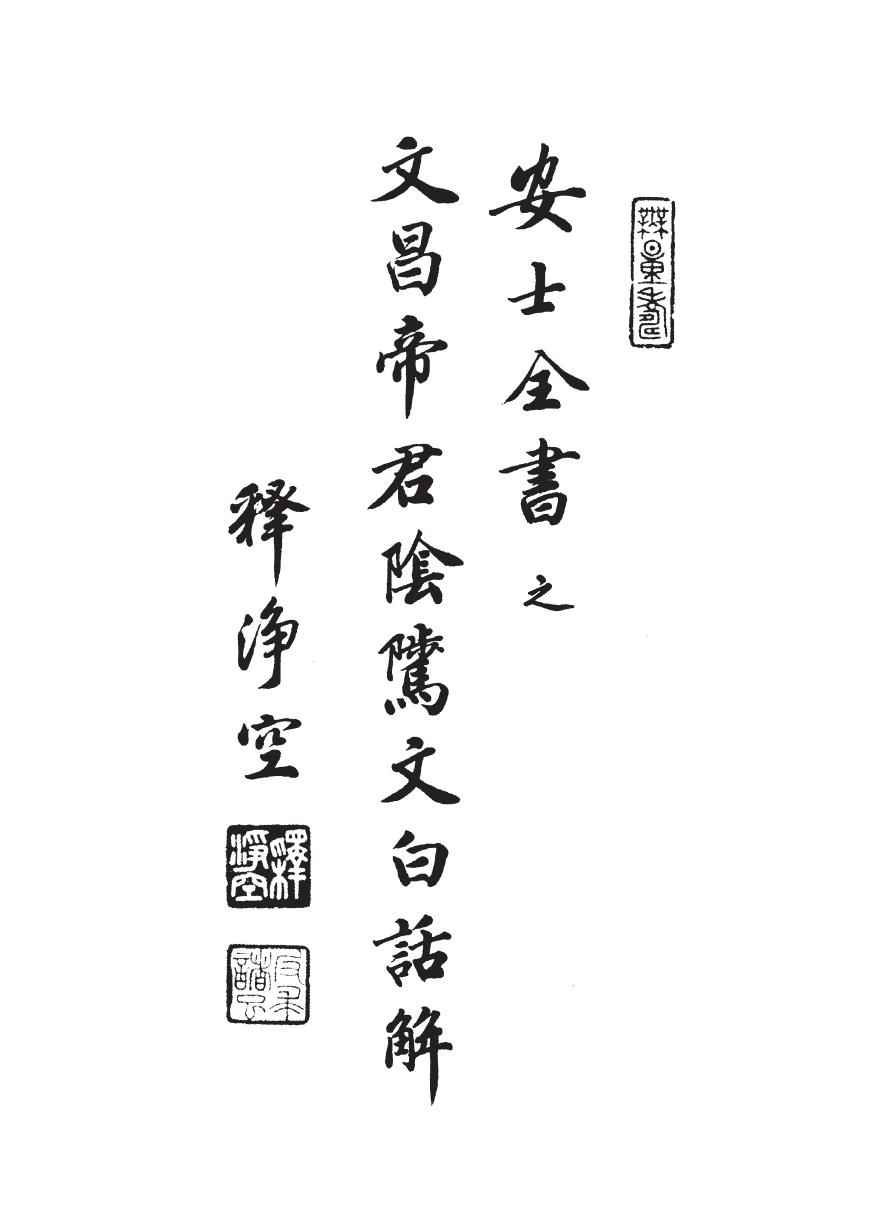 無量壽
安士全書之
文昌帝君陰騭文白話解
释淨空
釋淨空